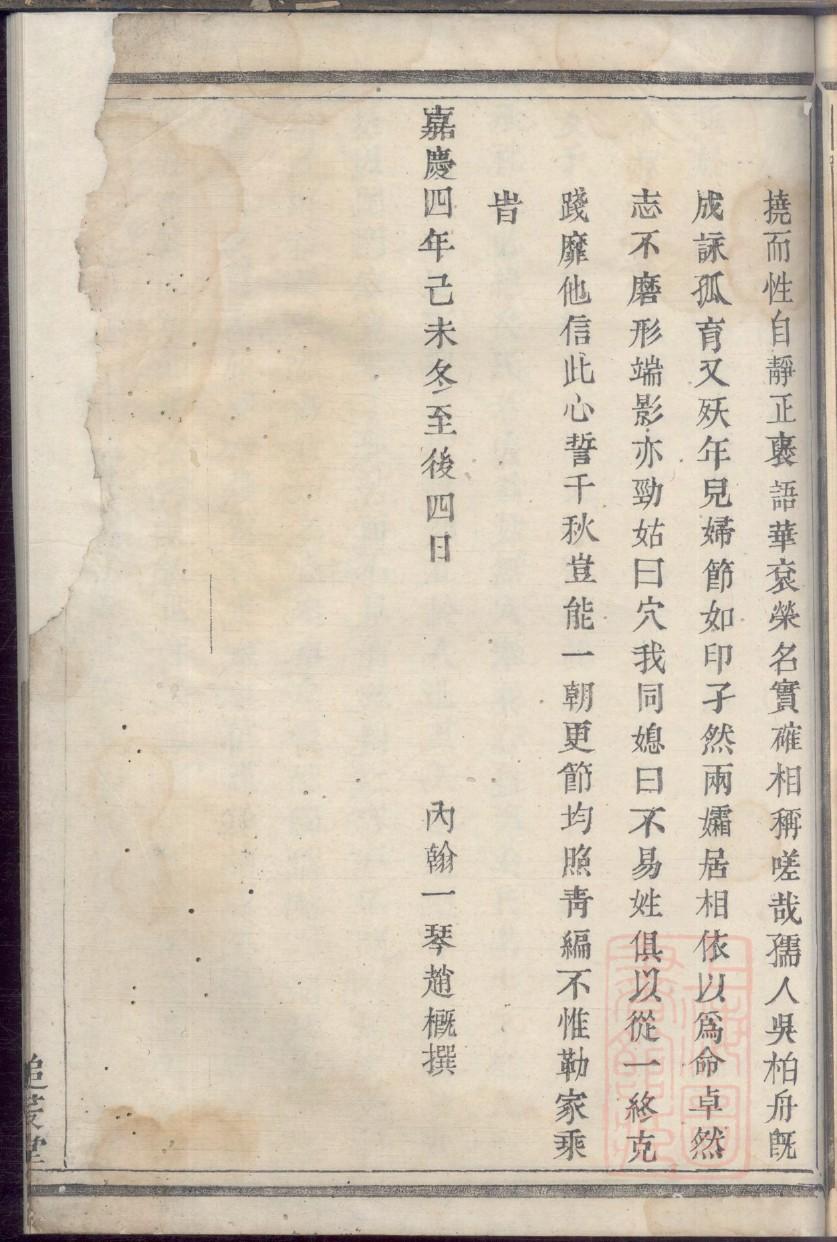 撓而性自靜正褒語華衮榮名實確相稱嗟哉孺人吳柏舟旣
成詠孤育又殀年兒婦節如印孑然兩孀居相依以爲命卓然
志不磨形端影亦勁姑曰穴我同媳曰不易姓俱以從一終克
踐靡他信此心誓千秋豈能一朝更節均照靑編不惟勒家乘
旹
嘉慶四年己未冬至後四日
內翰一琴趙槪撰